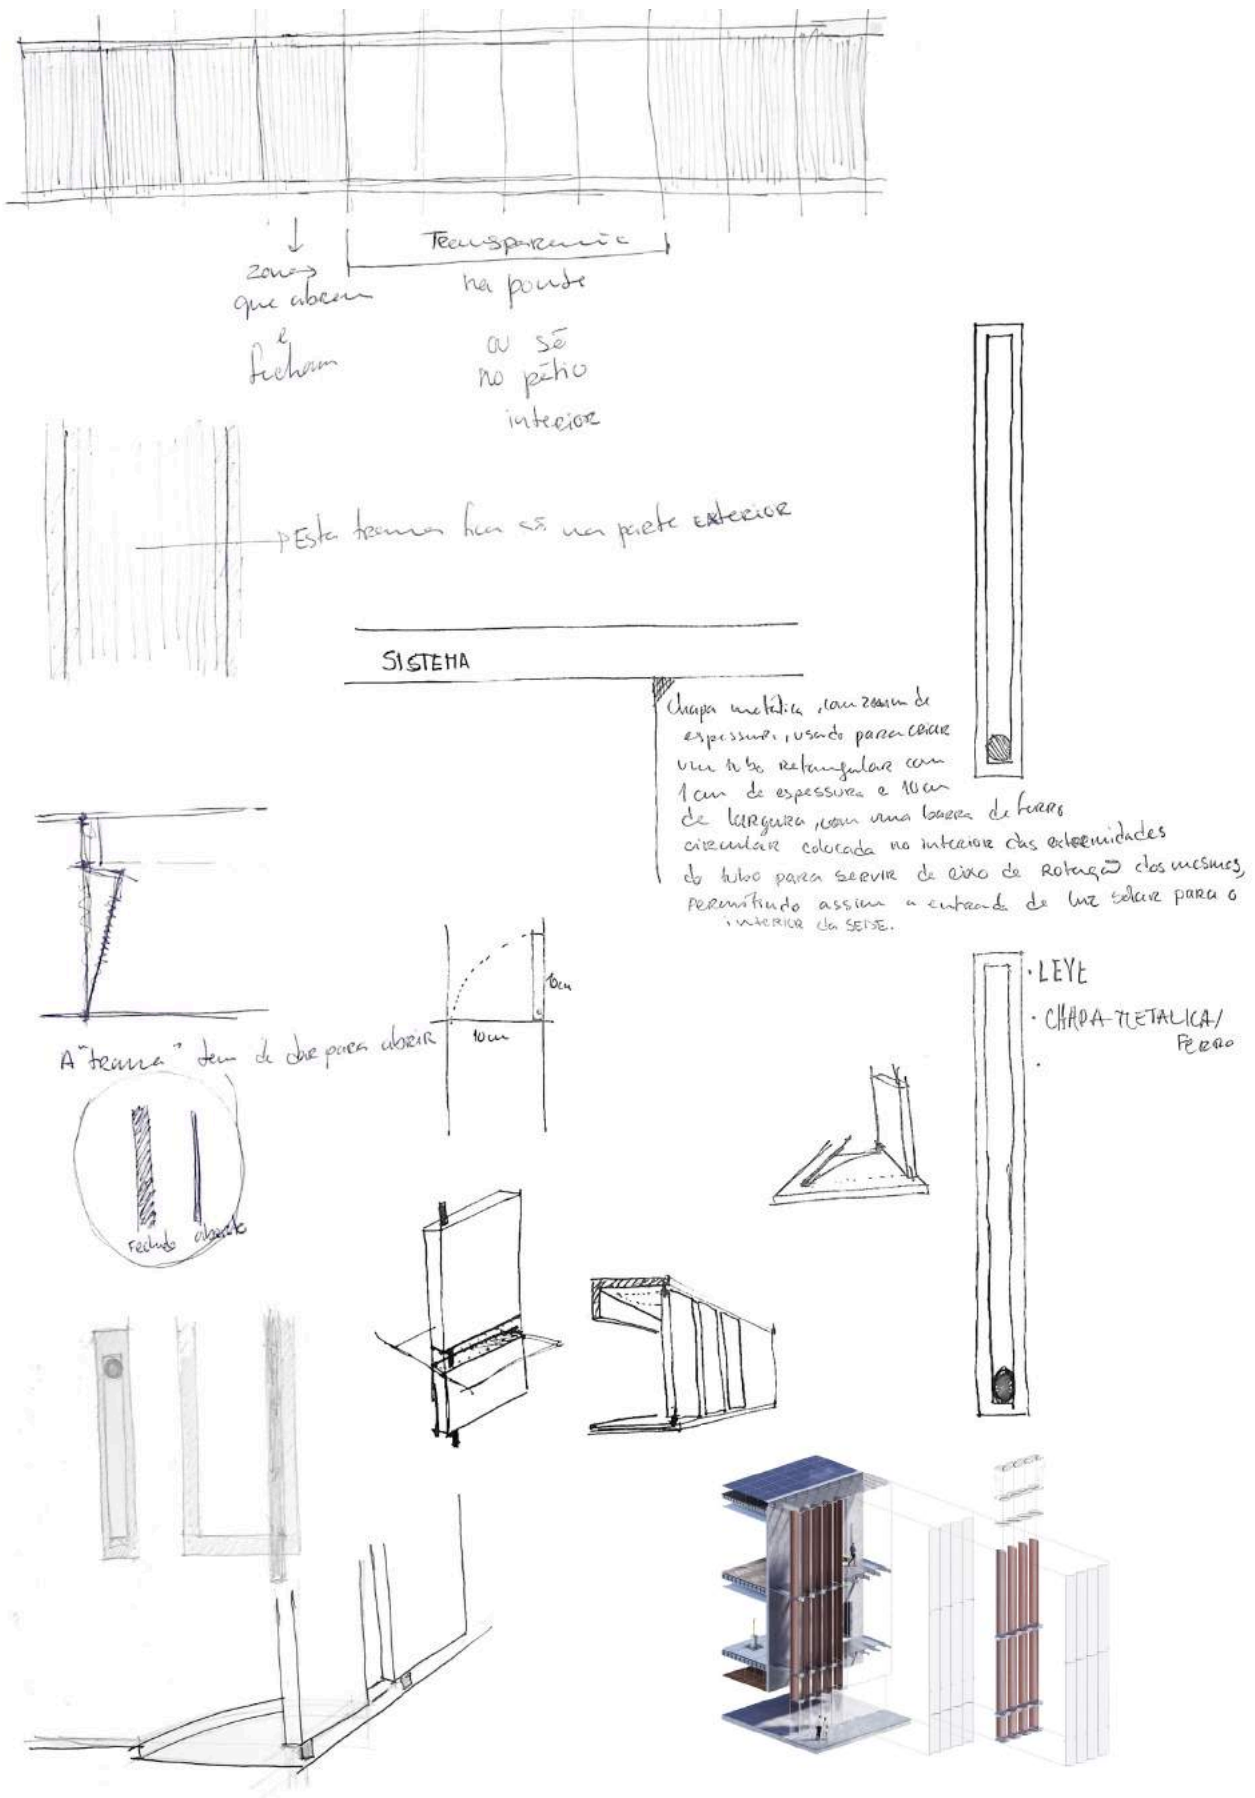 Transparencia
na ponte
ou só
no pátio
interior
zonas
que abrem
e
fecham
Esta trama fica só na parte EXTERIOR
SISTEMA
Chapa metálica, com de
espessura, usado para criar
um tubo retangular com
1 cm de espessura e 10 cm
de largura, com uma barra de ferro
circular colocada no interior das extremidades
do tubo para servir de eixo de rotação dos mesmos,
permitindo assim a entrada de luz solar para o
interior da SEDE.
10cm
10cm
A "trama" tem de dar para abrir
Fechado aberto
· LEVE
· CHAPA METALICA/
FERRO